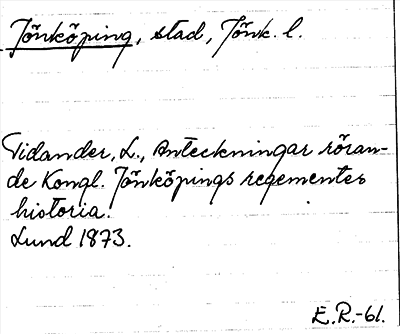 Jönköping, stad, Jönk. l.
Tidander, L., Anteckningar röran-
de Kongl. Jönköpings regementes
historia.
Lund 1873.
E.R.-61.